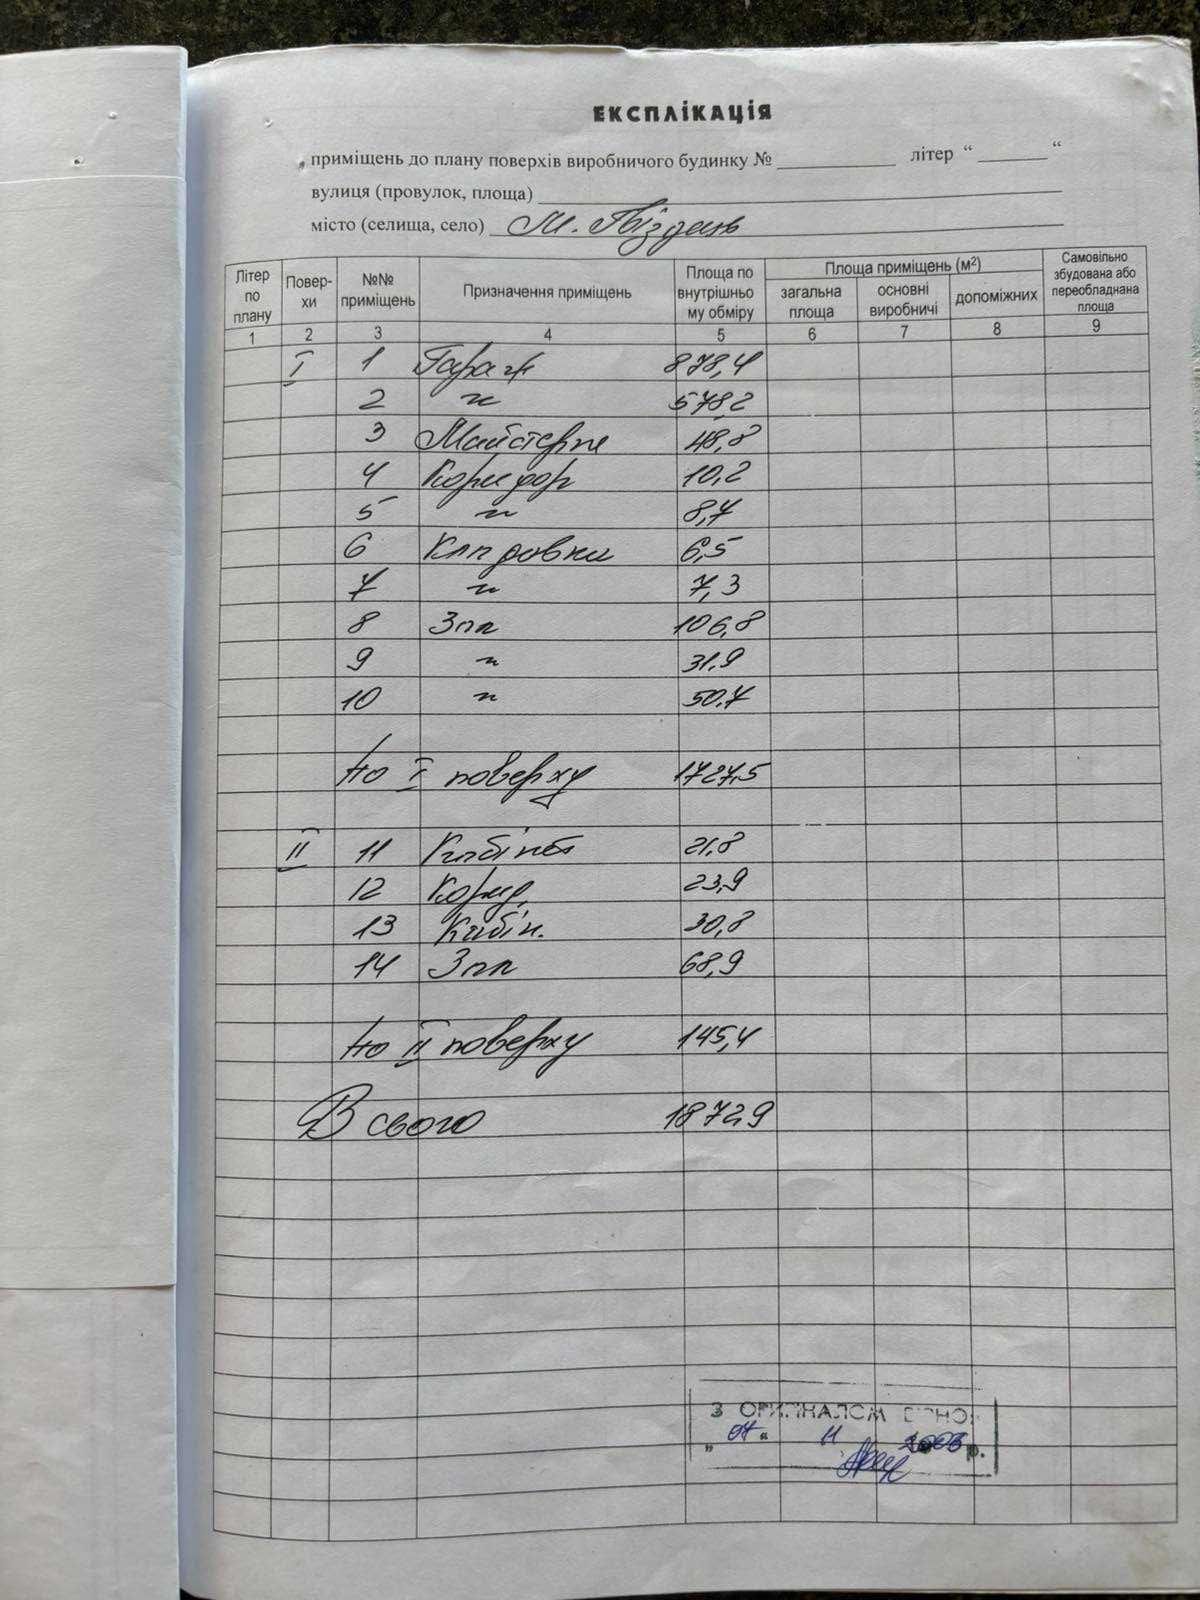 ЕКСПЛІКАЦІЯ
приміщень до плану поверхів виробничого будинку № ________ літер “ ______ “
вулиця (провулок, площа)
місто (селища, село) м.
Літер по плану | Повер-хи | №№ приміщень | Призначення приміщень | Площа по внутрішньо му обміру | Площа приміщень (м²) | загальна площа | основні виробничі | допоміжних | Самовільно збудована або переобладнана площа
1 2 3 4 5 6 7 8 9
I 1 Гараж 878,4
2 " 578,2
3 Майстерня 48,8
4 Коридор 10,2
5 " 8,7
6 Кладовка 6,5
7 " 7,3
8 Зал 106,8
9 " 31,9
10 " 50,7
По I поверху 1727,5
II 11 Кабінет 21,8
12 Корид. 23,9
13 Кабін. 30,8
14 Зал 68,9
По II поверху 145,4
Всього 1872,9
З ОРИГІНАЛОМ ВІРНО
„ 07 “ 11 2006 р.